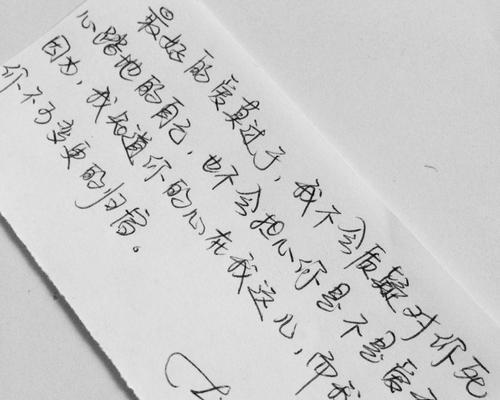 最好的爱莫过于，我不会质疑对你死
心踏地的自己，也不会担心你是不是爱
因为，我知道你的心在我这儿，而我
你不可变更的归宿。